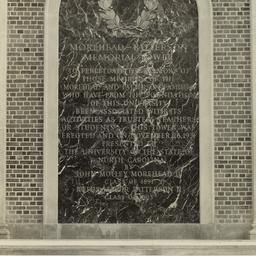 MOREHEAD-PATTERSON
MEMORIAL TOWER
TO PERPETUATE THE MEMORY OF
THOSE MEMBERS OF THE
MOREHEAD AND PATTERSON FAMILIES
WHO HAVE FROM THE FOUNDATION
OF THIS UNIVERSITY
BEEN ASSOCIATED WITH ITS
ACTIVITIES AS TRUSTEES TEACHERS
OR STUDENTS THIS TOWER WAS
ERECTED AND ON NOVEMBER
PRESENTED TO
THE UNIVERSITY OF THE STATE OF
NORTH CAROLINA
BY
JOHN MOTLEY MOREHEAD II
CLASS OF 1891
RUFUS LENOIR PATTERSON II
CLASS OF 1893